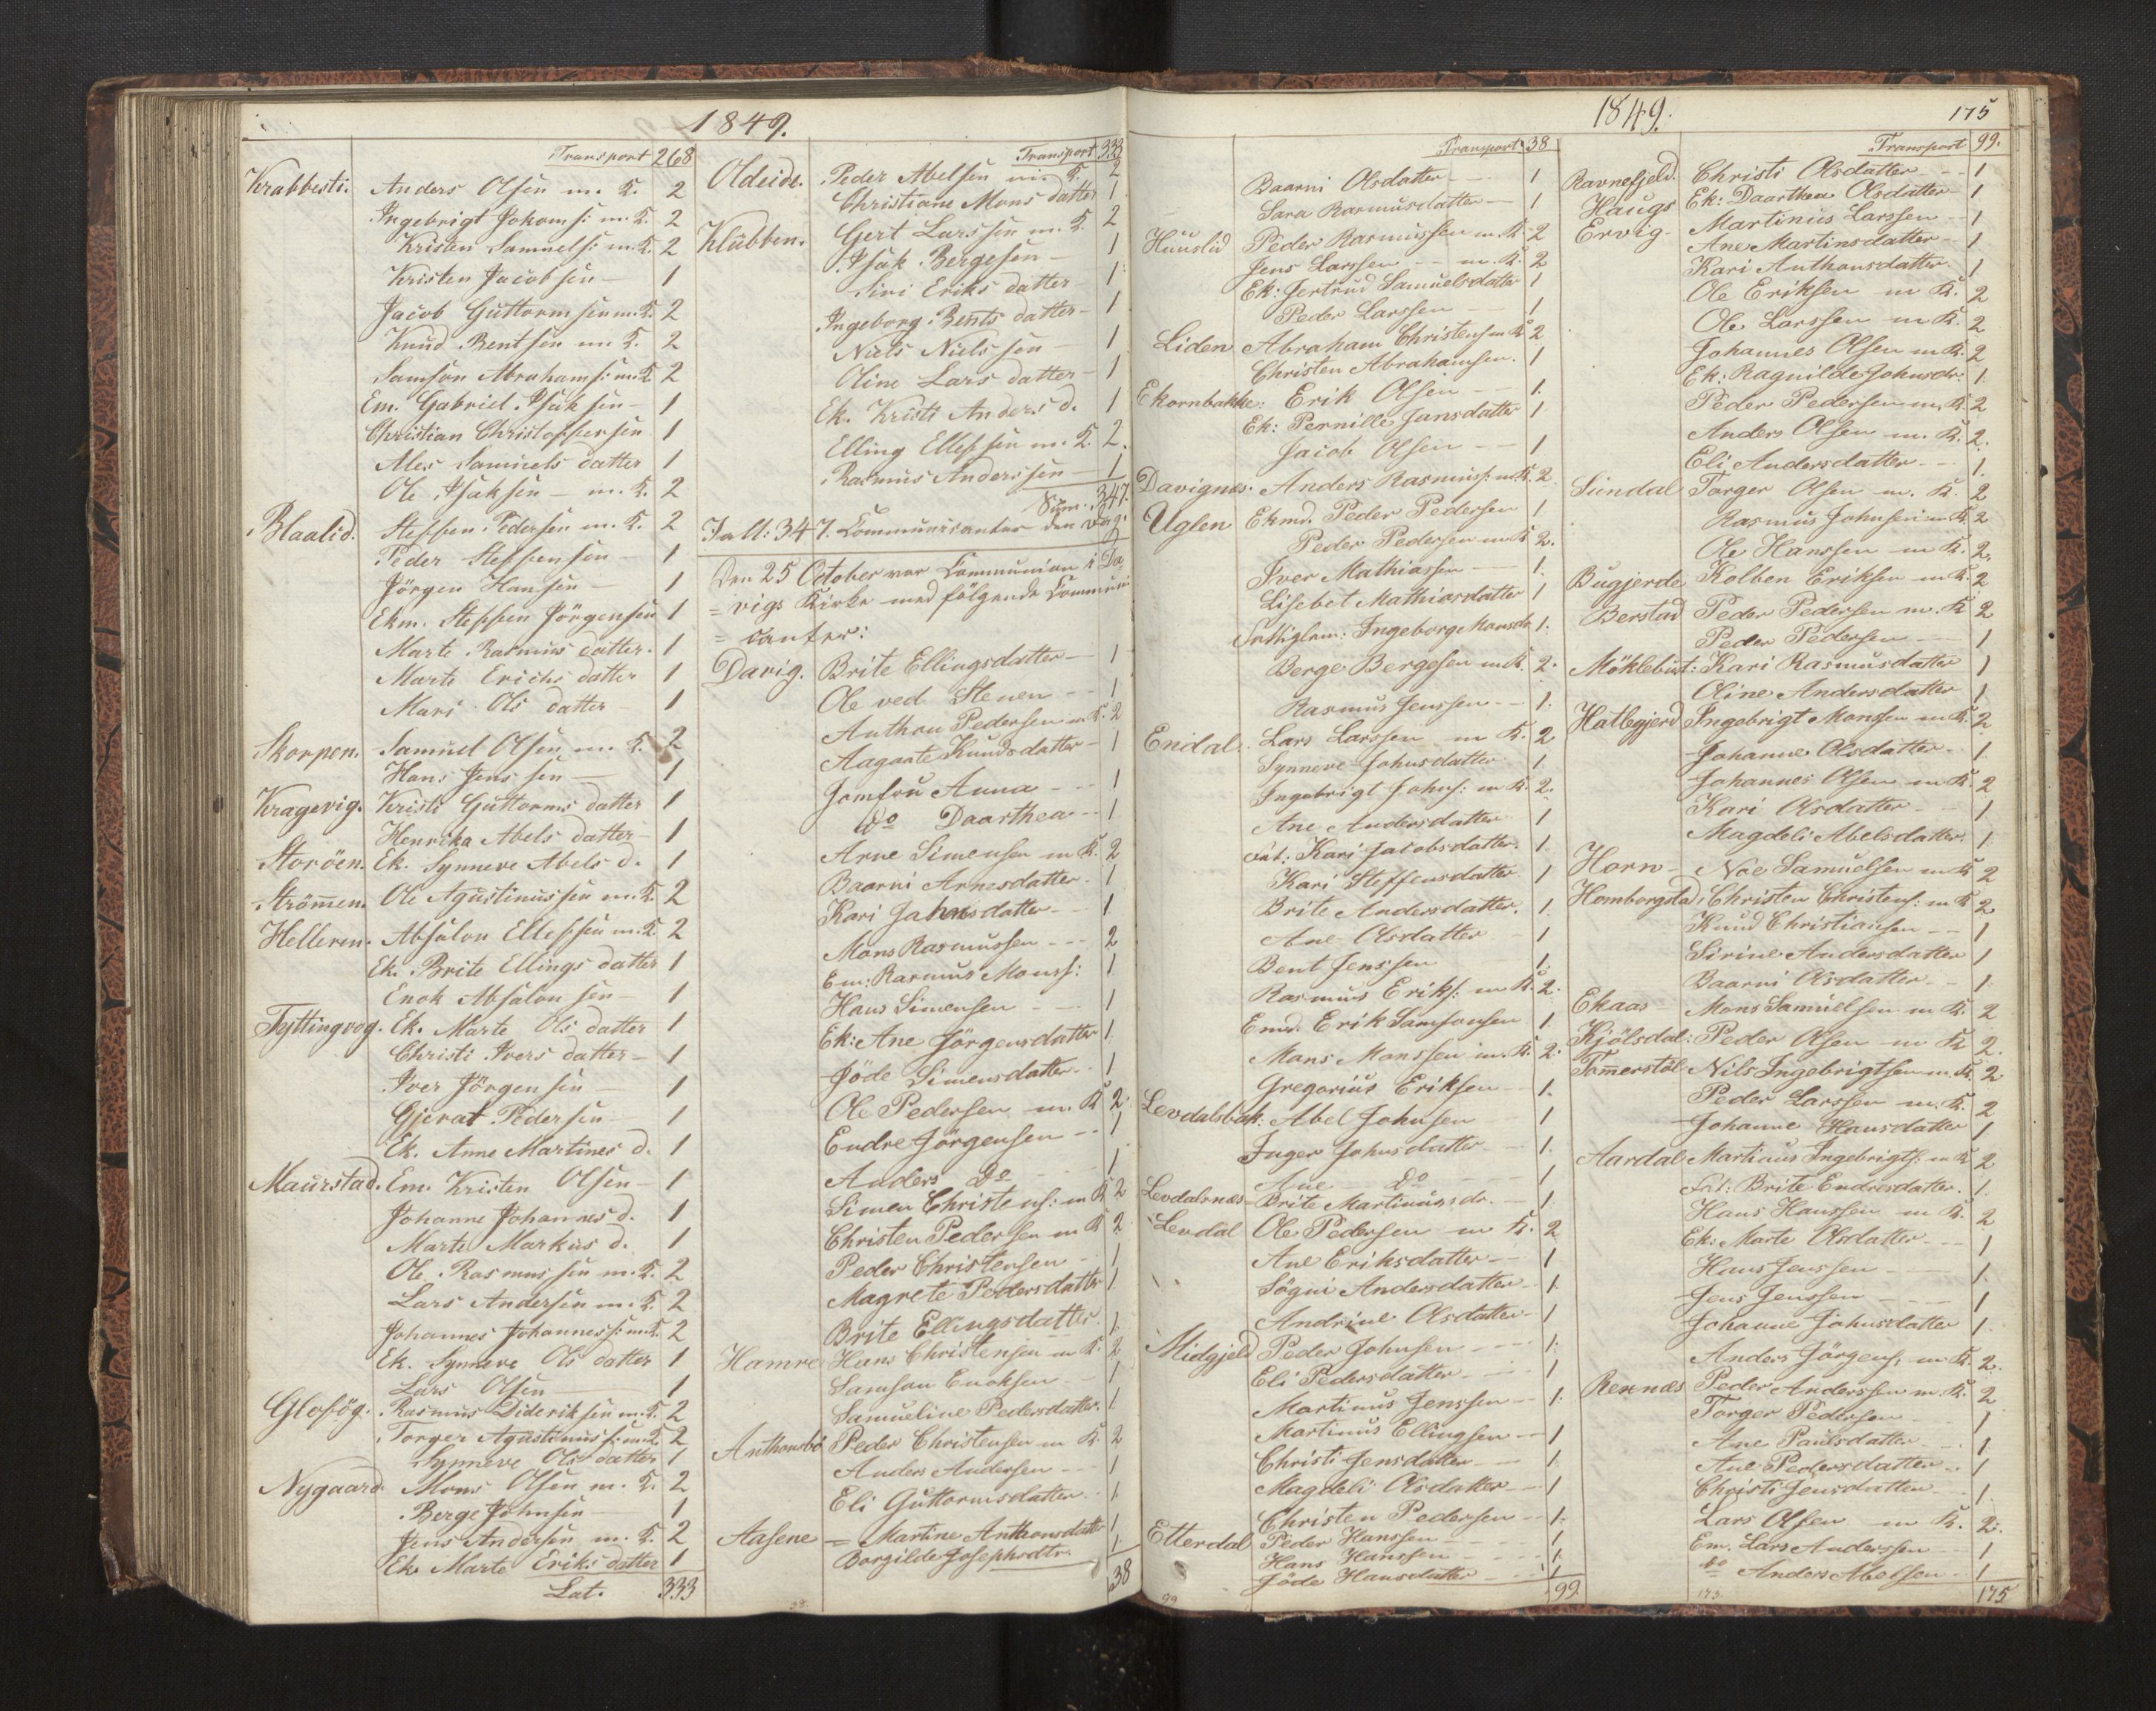 1849.
Transport 268
Krabbesti. Anders Olsen m. K. 2
Ingebrigt Jokoms: m. K. 2
Kristen Samuels: m. K. 2
Kristen Jacobsen – 1
Jacob Guttormsen m. K. 2
Knud Bentsen m. K. 2
Samson Abrahams: m. K. 2
Em. Gabriel Isaksen – 1
Christian Christoffersen 1
Ales Samuels datter 1
Ole Isaksen – m. K. 2
Blaalid. Steffen Pedersen m. K. 2
Peder Steffensen – 1
Jörgen Hansen – 1
Ekm. Steffen Jörgensen 1
Marte Rasmus datter. 1
Marte Erichs datter 1
Mari Ols datter – 1
Skorpen. Samuel Olsen m. K. 2
Hans Jenssen – 1
Kragevig. Kristi Guttorms datter 1
Henrika Abels datter – 1
Storöen. Ek. Synneve Abels d. 1
Strömen. Ole Agustinussen m. K. 2
Helleren. Absalon Ellefsen m. K. 2
Ek. Brite Ellings datter 1
Enok Absalonsen – 1
Tyttingvog. Ek. Marte Ols datter 1
Christi Ivers datter – 1
Iver Jörgensen – 1
Gjerat Pedersen – 1
Ek. Anne Martines d. 1
Maurstad. Em. Kristen Olsen – 1
Johanne Johannes d. 1
Marte Markus d. 1
Ole Rasmussen m. K. 2
Lars Andersen m. K. 2
Johannes Johanness: m. K. 2
Ek. Synneve Ols datter 1
Lars Olsen – 1
Glosög. Rasmus Dideriksen m. K. 2
Torger Agustinuss: m. K. 2
Synneve Ols datter 1
Nygaard. Mons Olsen m. K. 2
Berge Johnsen – 1
Jens Andersen m. K. 2
Ek. Marte Eriks datter 1
Lat. 333
Transport 333
Oldeide. Peder Abelsen m. K. 2
Christiane Mons datter 1
Klubben. Gert Larssen m. K. 2
Isak Bergesen – 1
Siri Eriks datter – 1
Ingeborg Bents datter – 1
Niels Nielssen – 1
Oline Lars datter – 1
Ek. Kristi Anders d. 1
Elling Ellefsen m. K. 2.
Rasmus Anderssen – 1
Sum. 347.
I alt: 347. Communicanter den Dag.
Den 25 October var Communion i Da
= vigs Kirke med fölgende Communi
= canter:
Davig. Brite Ellingsdatter – 1
Ole ved Stenen – – 1
Anthon Pedersen m K. 2
Aagaate Knudsdatter – 1
Jomfru Anna – – 1
do Daarthea – – 1
Arne Simensen m K. 2
Baarni Arnesdatter – 1
Kari Johnsdatter – – 1
Mons Rasmussen – – – 2
Em: Rasmus Monss: 1
Hans Simensen – – 1
Ek: Ane Jörgensdatter 1
Jöde Simensdatter. 1
Ole Pedersen m. K 2.
Endre Jörgensen – – 1
Anders do – – 1
Simen Christens: m K 2
Christen Pedersen m K 2
Peder Christensen – 1
Magrete Pedersdatter 1
Brite Ellingsdatter. 1.
Hamre Hans Christensen m K. 2
Samson Enoksen – 1
Samueline Pedersdatter. 1
Anthonsbö Peder Christensen m K. 2
Anders Andersen – – 1
Eli Guttormsdatter. 1.
Aasene = Martine Anthonsdatter 1
Borgilde Josephsdtr. 1
38
1849.
175
Transport 38
Baarni Olsdatter – – 1
Sara Rasmusdatter – 1
Huuslid Peder Rasmussen m. K. 2
Jens Larssen – – m. K. 2
Ek: Jertrud Samuelsdatter 1
Peder Larssen – – 1
Liden Abraham Christens m K 2
Christen Abrahamsen. 1
Ekornbakke: Erik Olsen – – 1.
Ek: Pernille Jansdatter 1
Jacob Olsen – – 1
Davignes. Anders Rasmuss: m K. 2.
Uglen Ekmd. Peder Pedersen 1.
Peder Pedersen m K 2.
Iver Mathiassen – – 1.
Lisebet Mathiasdatter 1
Fattiglem: Ingeborg Monsdr. 1.
Berge Bergesen m K. 2.
Rasmus Jenssen – – 1.
Endal. Lars Larssen m K. 2
Synneve Johnsdatter 1.
Ingebrigt Johns: m K. 2.
Ane Andersdatter 1
Fat: Kari Jacobsdatter. 1.
Kari Steffensdatter 1
Brite Andersdatter. 1.
Ane Olsdatter – 1
Bent Jenssen 1.
Rasmus Eriks: m K. 2.
Emd. Erik Samsonsen 1.
Mons Monssen m. K. 2.
Gregorius Eriksen – 1.
Levdalsbak: Abel Johnsen 1
Inger Johnsdatter – 1.
Ane do – – – 1
Levdalsnæs – Brite Martinusdr. – 1
Levdal Ole Pedersen m K. 2
Ane Eriksdatter – 1
Sögni Andersdatter 1.
Andrine Olsdatter – 1
Midgjeld Peder Johnsen – – – 1.
Eli Pedersdatter – – 1
Martinus Jenssen – – 1.
Martinus Ellingsen – – 1
Christi Jensdatter – – 1.
Magdeli Olsdatter – – 1
Christen Pedersen – – 1.
Etterdal Peder Hanssen – – – 1.
Hans Hanssen – – – 1
Jöde Hansdatter – – 1
99
Transport 99.
Ravnefjeld. Christi Olsdatter – – 1
Haugs Ek: Daarthea Olsdatter – 1
Ervig – Martinus Larssen – – 1
Ane Martinsdatter – 1
Kari Anthonsdatter. 1
Ole Eriksen m K. 2
Ole Larssen m K. 2
Johannes Olsen m K. 2
Ek: Ragnilde Johnsdr. 1
Peder Pedersen m. K. 2
Anders Olsen m. K. 2.
Eli Andersdatter – – 1.
Sundal Torger Olsen m. K. 2
Rasmus Johnsen m K. 2
Ole Hanssen m K. 2.
Bugjerde Kolben Eriksen m K. 2
Berstad Peder Pedersen m. K 2
Peder Pedersen – – 1
Möklebust: Kari Rasmusdatter 1
Oline Andersdatter 1
Hatlegjerd Ingebrigt Monssen m K. 2
Johanne Olsdatter – 1
Johannes Olsen m K. 2
Kari Olsdatter – – 1
Magdeli Abelsdatter. 1
Horn – Noe Samuelsen m K 2
Homborgstad, Christen Christens: m K 2
Knud Christiansen – – 1
Sirine Andersdatter 1
Baarni Olsdatter – – 1
Ekaas Mons Samuelsen m K. 2
Kjölsdal: Peder Olsen m K 2.
Tomerstöl Nils Ingebrigtsen m. K. 2
Peder Larssen m. K. 2
Johanne Hansdatter 1
Aardal Martinus Ingebrigts: m K 2
Fat: Brite Endresdatter. 1.
Hans Hanssen m K. 2
Ek: Marte Olsdatter – – 1
Hans Jenssen – – 1.
Jens Jenssen – – – 1
Johanne Johnsdatter 1
Anders Jörgens. m K. 2.
Rennæs Peder Anderssen m. K. 2
Torger Pedersen – 1
Ane Paulsdatter – 1
Ane Pedersdatter – 1
Christi Jensdatter – 1.
Lars Olsen m K. 2.
Em. Lars Anderssen 1
do Anders Abelsen – 1
175